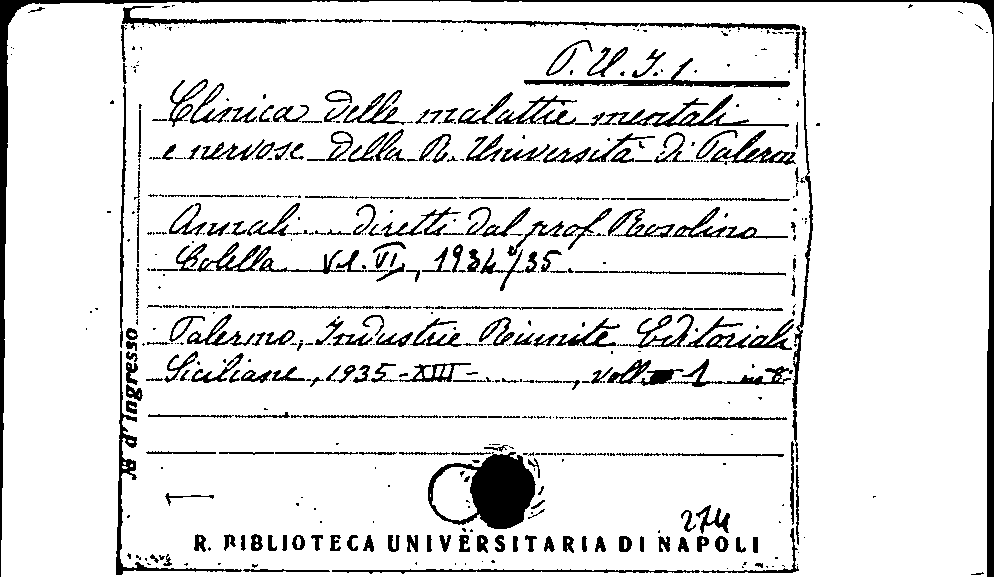 P. U. I. 1.
Clinica delle malattie mentali
e nervose della R. Università di Palerm
Annali ... diretti dal prof Rosolino
Colella vl. VI, 1934/35.
Palermo, Industrie Riunite Editoriali
Siciliane, 1935-XIII- ......, voll. 1 in 8°
N. d'ingresso
274
R. BIBLIOTECA UNIVERSITARIA DI NAPOLI